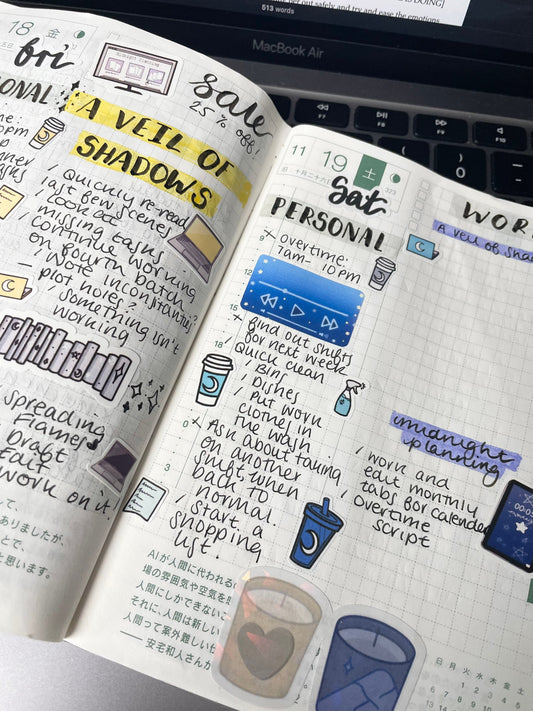 513 words
MacBook Air
18 金
fri
Sale
25% off!
A VEIL OF
SHADOWS
/ Quickly re-read
last few scenes
/ Look at
missing tasks
/ continue working
on fourth batch
- Note inconstanties?
- plot holes?
/ Something isn't
working
Spreading
Flames
Draft
Edit
work on it!
ありましたが、
とで、
と思います。
11 19 土
323
sat
PERSONAL
9
× overtime:
7am- 10pm
12
15
× find out shifts
for next week
18
/ Quick clean
/ Bin
/ Dishes
/ Put work
clothes in
the wash
0
× Ask about taking
on another
shift when
back to
normal.
3
/ Start a
shopping
list.
WOR
A veil of Sha
midnight
planning
/ work and
edit monthly
tabs for calendar
/ overtime
script
00:0
AIが人間に代われる
場の雰囲気や空気を
人間にしかできない
それに、人間は新しい
人間って案外難しい
—— 安宅和人さんか
日 月 火 水 木 金 土